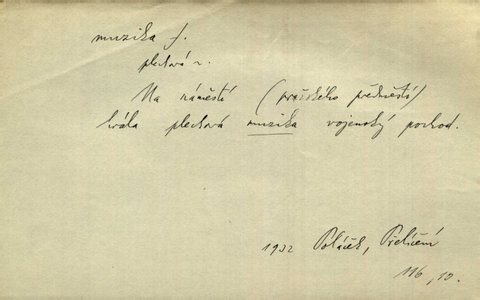 muzika f.
plechová ~.
Na náměstí (pražského předměstí)
hrála plechová muzika vojenský pochod.
1932 Poláček, Přelíčení
116, 10.